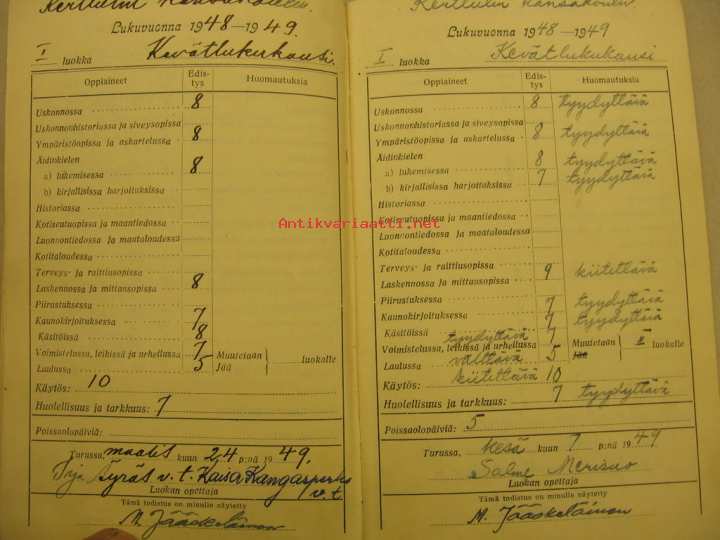 Kerttulin kansakoulun.
Lukuvuonna 1948—1949.
I luokka Kevätlukukausi.
Oppiaineet Edistys Huomautuksia
Uskonnossa 8
Uskonnonhistoriassa ja siveysopissa
Ympäristöopissa ja askartelussa 8
Äidinkielen
a) lukemisessa 8
b) kirjallisissa harjoituksissa
Historiassa
Kotiseutuopissa ja maantiedossa
Luonnontiedossa ja maataloudessa
Kotitaloudessa
Terveys- ja raittiusopissa
Laskennossa ja mittausopissa 8
Piirustuksessa
Kaunokirjoituksessa 7
Käsitöissä 8
Voimistelussa, leikissä ja urheilussa 7 Muutetaan
Laulussa 5 Jää luokalle
Käytös: 10
Huolellisuus ja tarkkuus: 7
Poissaolopäiviä:
Turussa, maalis kuun 24 p:nä 1949.
Äyräs v.t. Kaisa Kangasperko
v.t.
Luokan opettaja
Tämä todistus on minulle näytetty
M. Jääskeläinen
Kerttulin kansakoulun
Lukuvuonna 1948—1949
I luokka Kevätlukukausi
Oppiaineet Edistys Huomautuksia
Uskonnossa 8 tyydyttävä
Uskonnonhistoriassa ja siveysopissa
Ympäristöopissa ja askartelussa 8 tyydyttävä
Äidinkielen
a) lukemisessa 8 tyydyttävä
b) kirjallisissa harjoituksissa 7 tyydyttävä
Historiassa
Kotiseutuopissa ja maantiedossa
Luonnontiedossa ja maataloudessa
Kotitaloudessa
Terveys- ja raittiusopissa
Laskennossa ja mittausopissa 9 kiitettävä
Piirustuksessa
Kaunokirjoituksessa 7 tyydyttävä
Käsitöissä 7 tyydyttävä
Voimistelussa, leikissä ja urheilussa tyydyttävä 7 Muutetaan II
Laulussa välttävä 5 Jää luokalle
Käytös: kiitettävä 10
Huolellisuus ja tarkkuus: 7 tyydyttävä
Poissaolopäiviä: 5
Turussa, kesä kuun 7 p:nä 1949
Salme Merisuo
Luokan opettaja
Tämä todistus on minulle näytetty
M. Jääskeläinen
Antikvariaatti.net